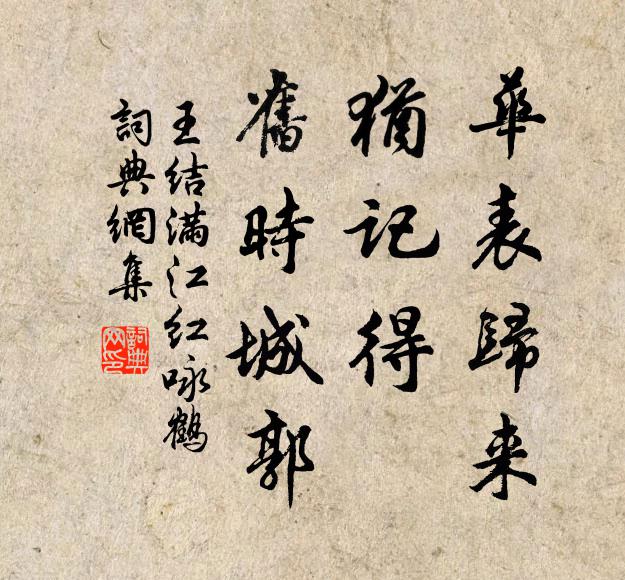 華表歸来
猶記得
舊時城郭
王结满江红咏鶴
詞典網集
詞典网印